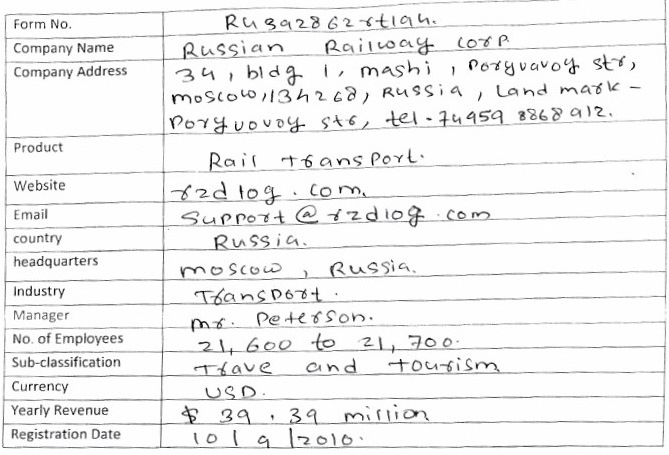 Form No. Rusa2862rtlau.
Company Name Russian Railway corp
Company Address 34, bldg 1, mashi, Poryvavoy str,
moscow, 134268, Russia, Land mark -
Poryvovoy str, tel - 74959 8868912.
Product Rail transport.
Website rzdlog.com.
Email Support@rzdlog.com
country Russia.
headquarters moscow, Russia.
Industry Transport.
Manager mr. Peterson.
No. of Employees 21,600 to 21,700.
Sub-classification Trave and tourism
Currency USD.
Yearly Revenue $ 39.39 million
Registration Date 10/9/2010.